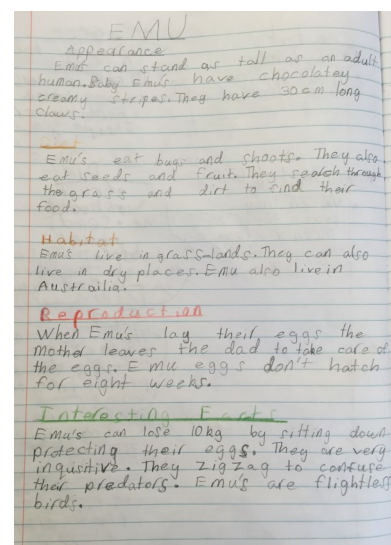 EMU
Appearance
Emu's can stand as tall as an adult
human. Baby Emu's have chocolatey
creamy stripes. They have 30cm long
claws.
Diet
Emu's eat bugs and shoots. They also
eat seeds and fruit. They search through
the grass and dirt to find their
food.
Habitat
Emu's live in grass-lands. They can also
live in dry places. Emu also live in
Austrailia.
Reproduction
When Emu's lay their eggs the
mother leaves the dad to take care of
the eggs. Emu eggs don't hatch
for eight weeks.
Interesting Facts
Emu's can lose 10kg by sitting down
protecting their eggs. They are very
inqusitive. They zigzag to confuse
their predators. Emu's are flightless
birds.